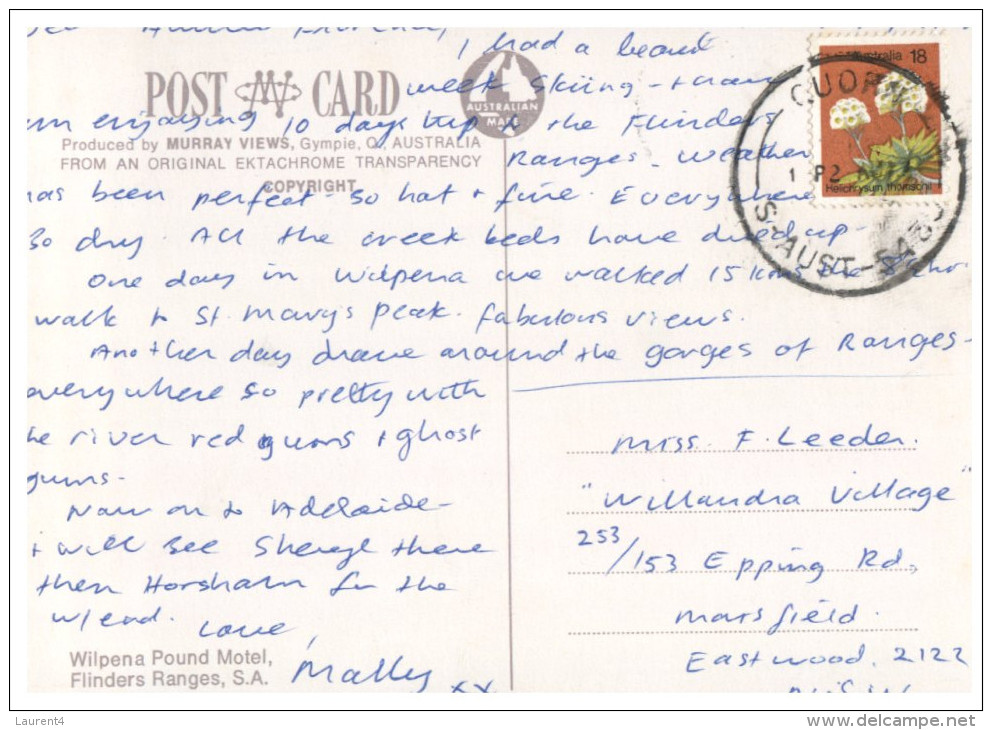 I had a
week skiing - + am
enjoying 10 days trip to the Flinders
Ranges - Weather
has been perfect - so hot + fine. Everywhere
so dry. All the creek beds have dried up -
One day in Wilpena we walked 15 kms the
walk to St. Mary's Peak. Fabulous views.
Another day drove around the gorges of Ranges -
everywhere so pretty with
the river red gums + ghost
gums -
Now on to Adelaide -
+ will see Sheryl there
then Horsham for the
w/end.
Love,
Mally
xx
POST CARD
AUSTRALIAN MADE
Produced by MURRAY VIEWS, Gympie, Q., AUSTRALIA
FROM AN ORIGINAL EKTACHROME TRANSPARENCY
COPYRIGHT
Wilpena Pound Motel,
Flinders Ranges, S.A.
Australia 18
Helichrysum thomsonii
QUORN
S. AUST -
Miss. F. Leeder.
"Willandra Village"
253/153 Epping Rd,
Marsfield.
Eastwood. 2122
N.S.W.
Laurent4
www.delcampe.net